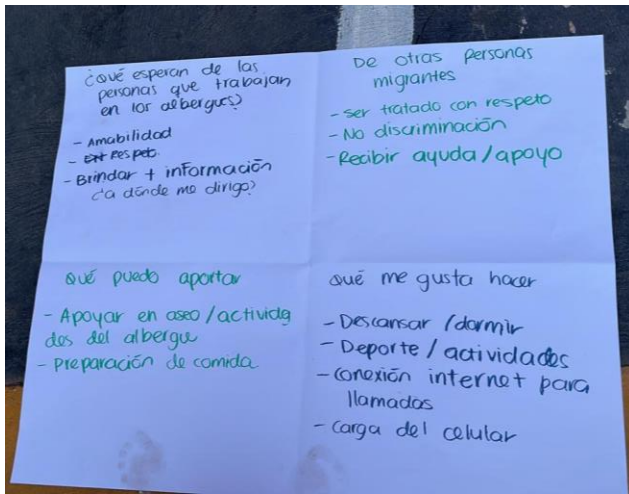 ¿Qué esperan de las
personas que trabajan
en los albergues?
- Amabilidad
- Respeto.
- Brindar + información
¿a dónde me dirijo?
De otras personas
migrantes
- ser tratado con respeto
- No discriminación
- Recibir ayuda/apoyo
Qué puedo aportar
- Apoyar en aseo/activida
des del albergue
- Preparación de comida
Qué me gusta hacer
- Descansar/dormir
- Deporte/actividades
- Conexión internet para
llamadas
- Carga del celular